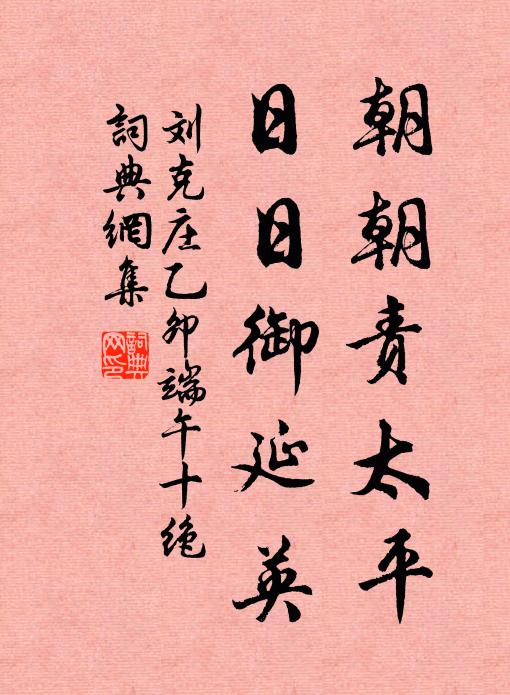 朝朝責太平
日日御延英
刘克庄乙卯端午十绝
詞典網集
詞典网印